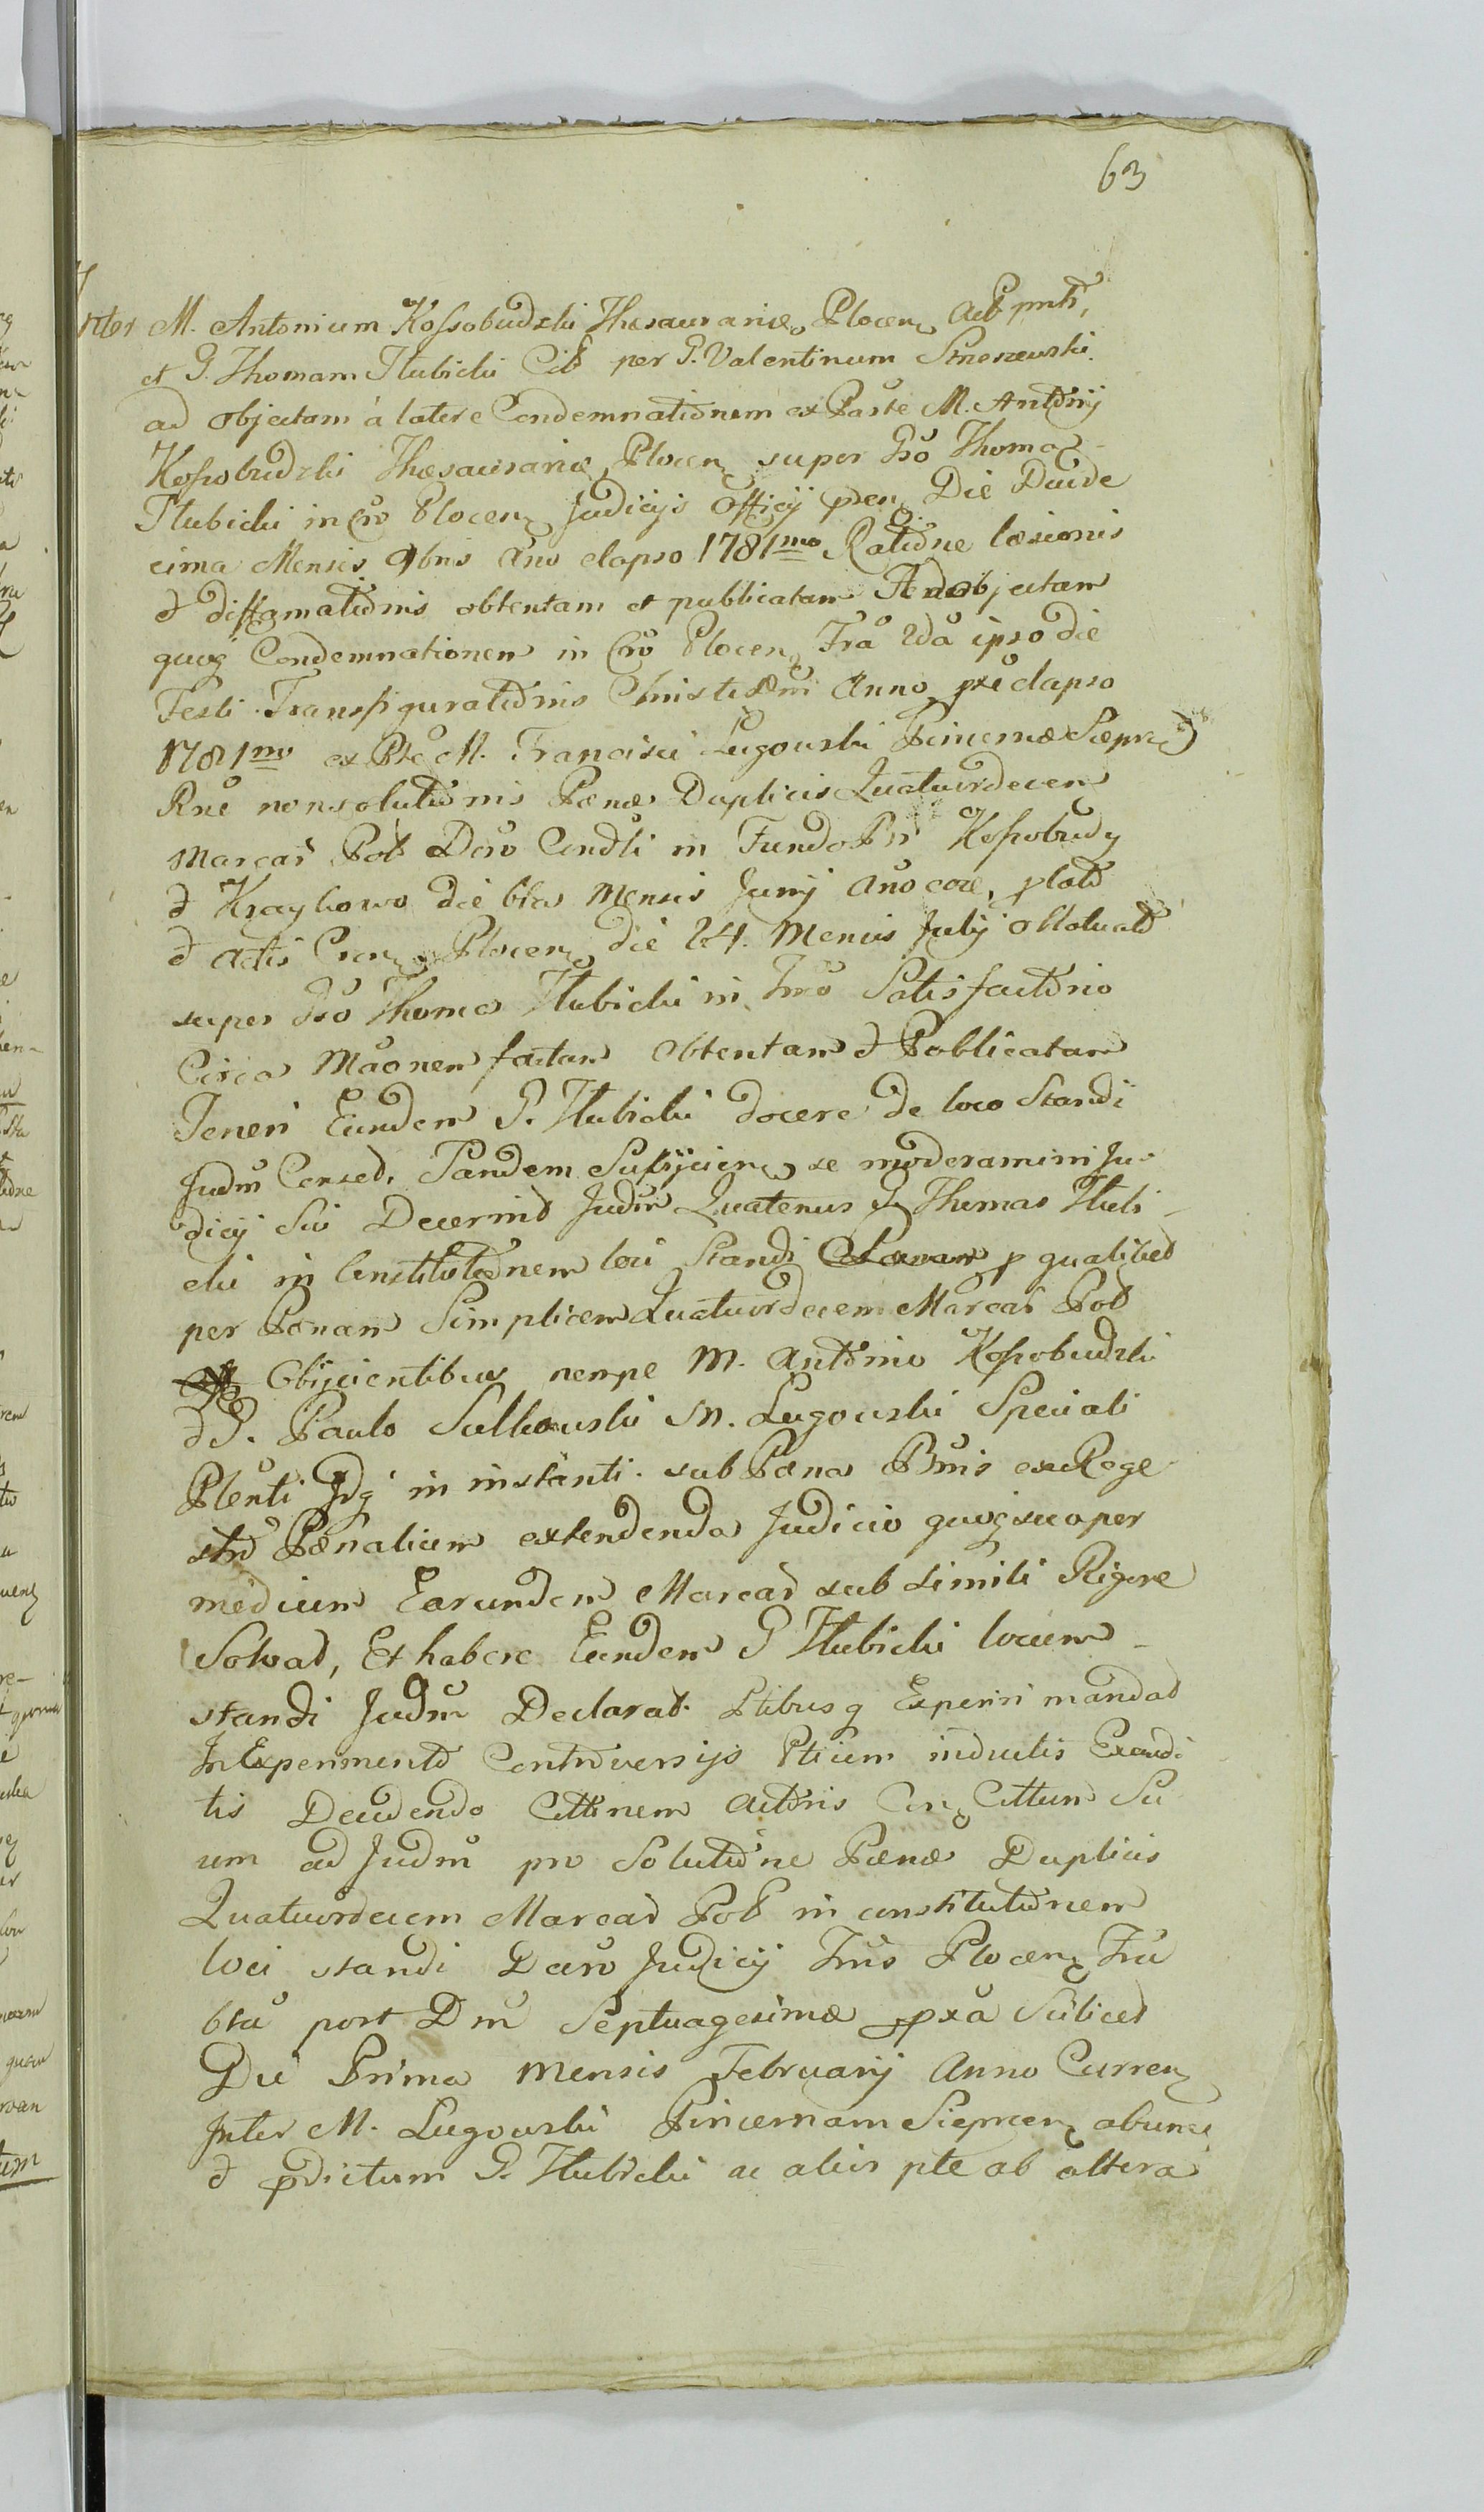 63
Inter M. Antonium Kossobudzki Thesaurariæ Plocen Act pnti,
et G. Thomam Hubicki Citt per G. Valentinum Strzeszewski
ad objectam à latere Condemnationem ex Parte M. Antonij
Kossobudzki Thesaurariæ Plocen super Gso Thoma
Hubicki in Cro Plocen Judicijs Officij pren Die Duode
cima Mensis 9bris Ano elapso 1781mo Ratione læsionis
& diffamationis obtentam et publicatam Ad objectam
quoq Condemnationem in Cro Plocen Fra 2da ipso die
Festi Transfigurationis Christi Dni Anno pxe elapso
1781mo ex Pte M. Francisci Lugowski Pincernæ Sieprc
Rne non solutionis Pænæ Duplicis Quatuordecem
Marcar Pol Dcro Condli in Fundo Bn Kossobudy
& Krajkowo die 6ta Mensis Junij Ano eoe, plato
& Actis Cren Plocen die 24. Mensis Julij oblatuato
super Gso Thoma Hubicki in Trmo Satisfactorio
Circa Maonem factam Obtentam & Publicatam
Teneri Eundem G. Hubicki docere de loco Standi
Judm Censed, Tandem Subijcien se moderamini Ju
dicij Sui Decernit Judm Quatenus G Thomas Hubi
cki in Constitutionem loci Standi p qualibet
per Pænam Simplicem Quatuordecem Marcar Pol
Obijcientibus nempe M. Antonio Kossobudzki
& G. Paulo Sulkowski M. Lugowski Speciali
Plenti Jdq in instanti sub Pæna Bnis ex Rege
stro Pænalium extendenda Judicio quoq suo per
medium Earundem Marcar sub simili Rigore
Solvat, Et habere Eundem G Hubicki locum
standi Judm Declarat Ptibusq Experiri mandat
In Experimento Controversijs Ptium inductis Exaudi
tis Deducendo Cittnem Actoris Con Cittum Su
um ad Judm pro Solutione Pænæ Duplicis
Quatuordecem Marcar Pol in constitutionem
loci standi Dcro Judicij Trris Plocen Fra
6ta post Dm Septuagesimæ pxa Scilicet
Die Prima Mensis Februarij Anno Curren
Inter M. Lugowski Pincernam Sieprcen ab una
& pdictum G. Hubicki ac alios pte ab altera